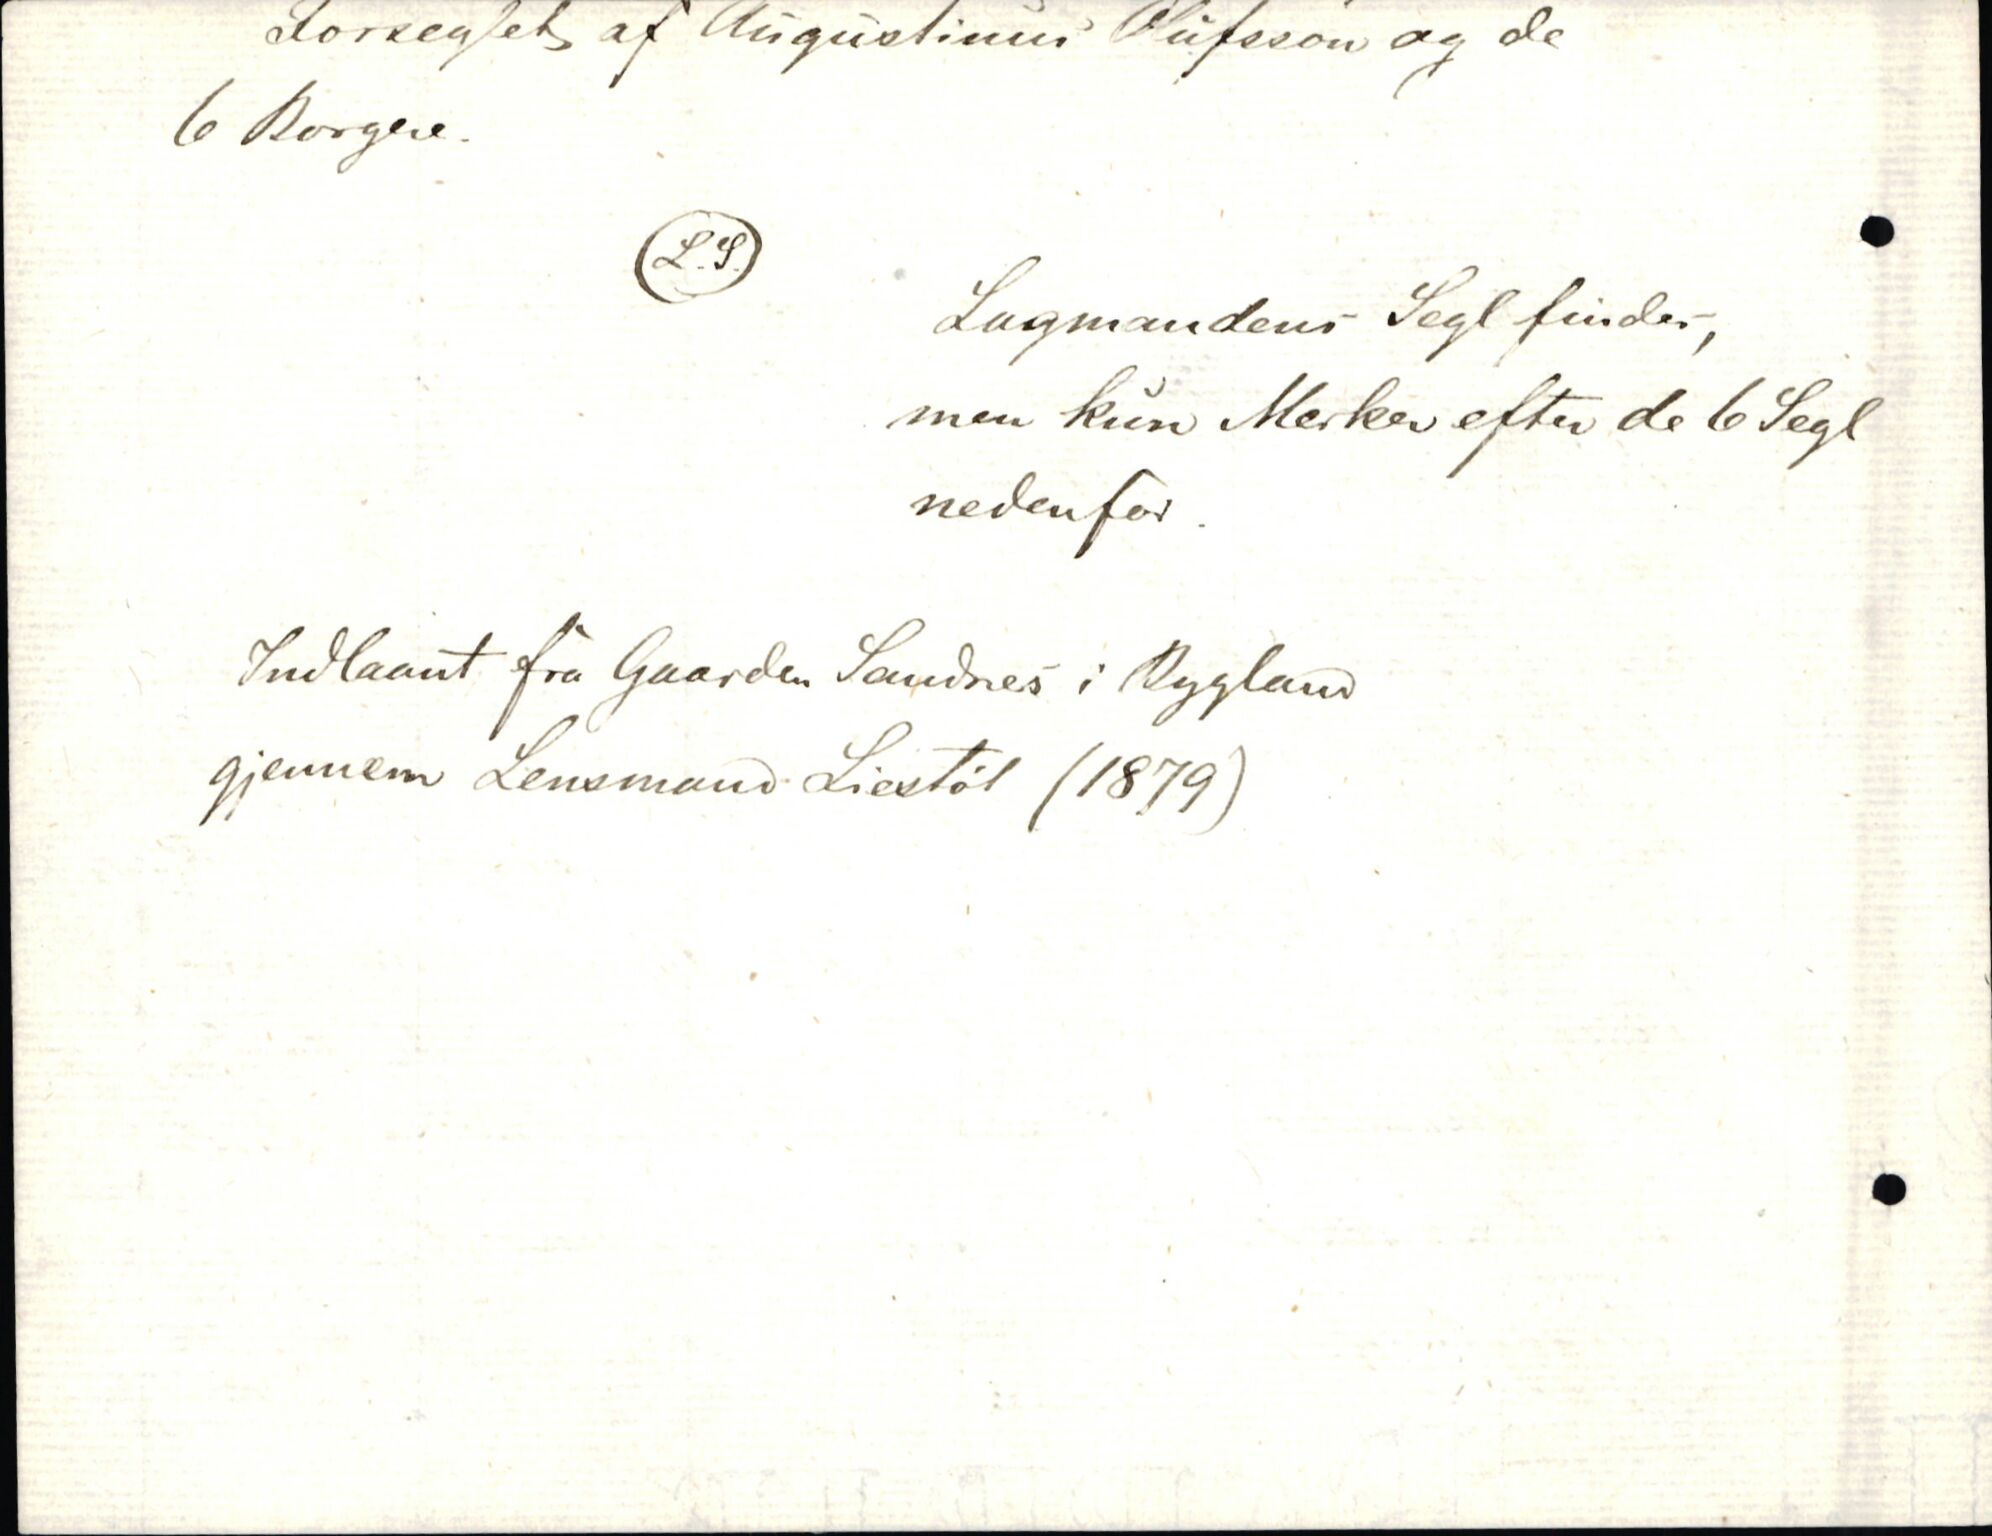 Forseglet af Augustinus Olufsson og de
6 Borgere.
L.S.
Lagmandens Segl findes,
men kun Merker efter de 6 Segl
nedenfor.
Indlaant fra Gaarden Sandnes i Bygland
gjennem Lensmand Liestøl (1879)